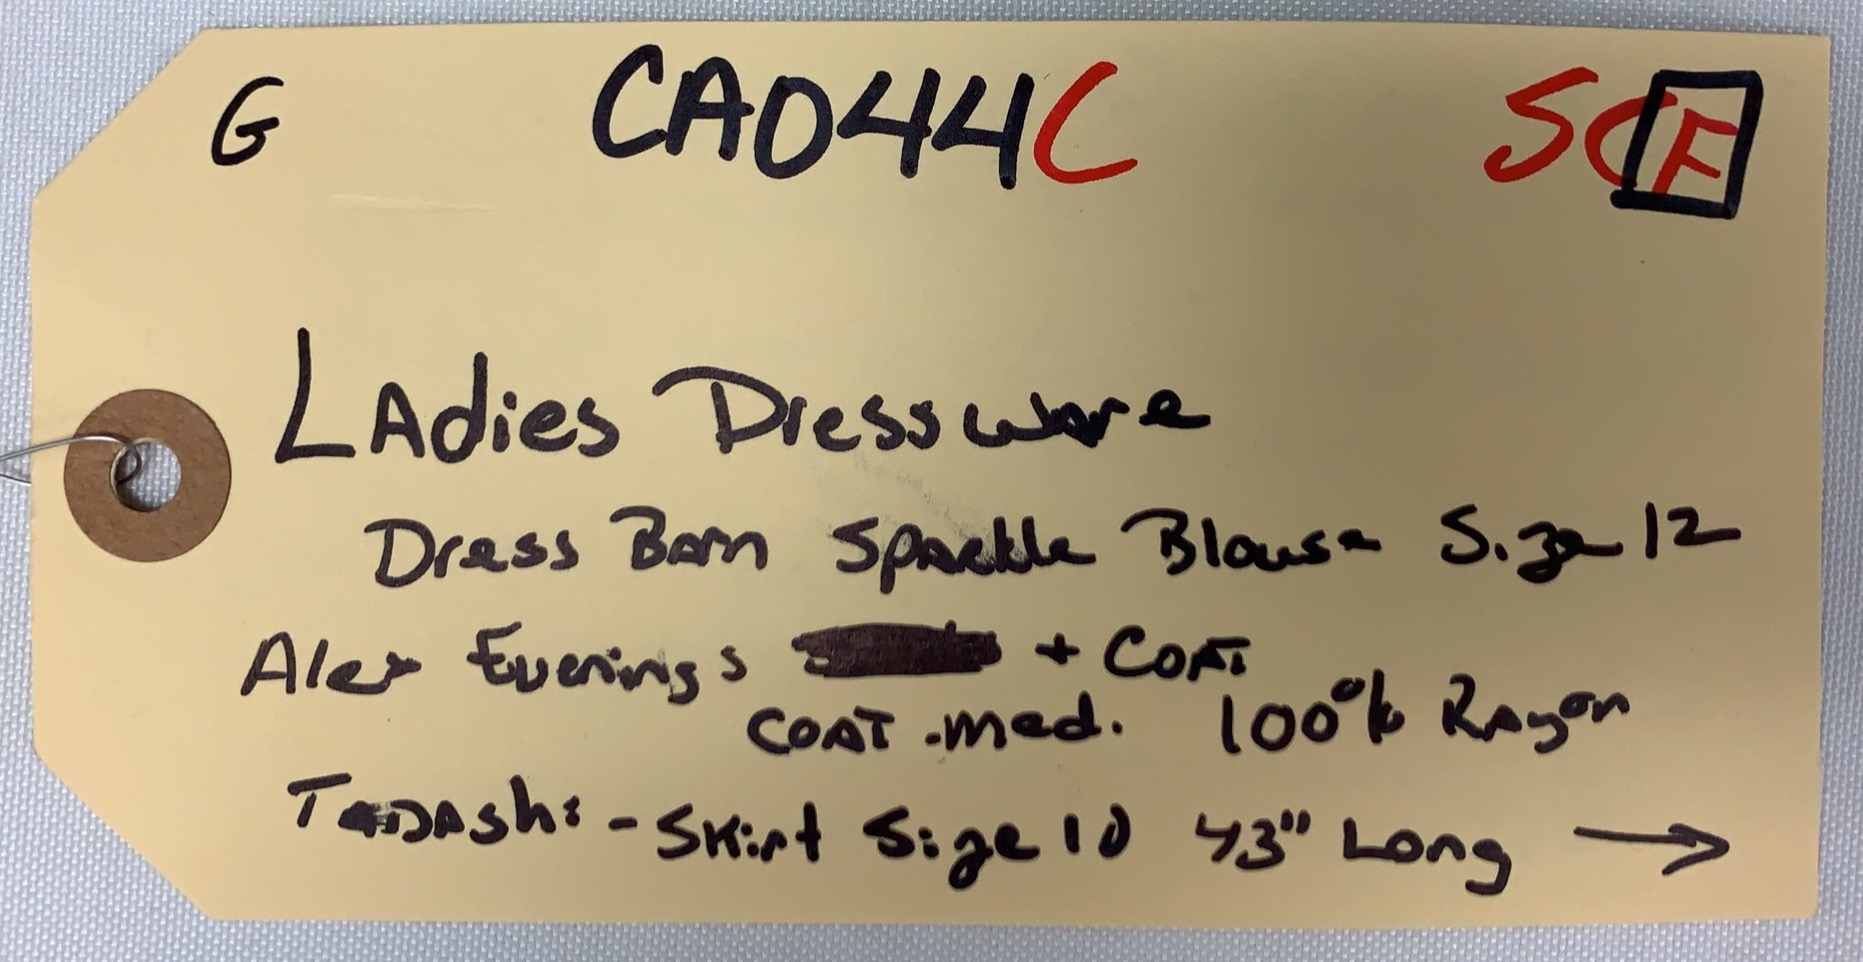 G CA044C SCF
LAdies Dressware
Dress Barn Sparkle Blouse Size 12
Alex Evenings + COAT
COAT - med. 100% Rayon
TADAShi - Skirt Size 10 43" Long →